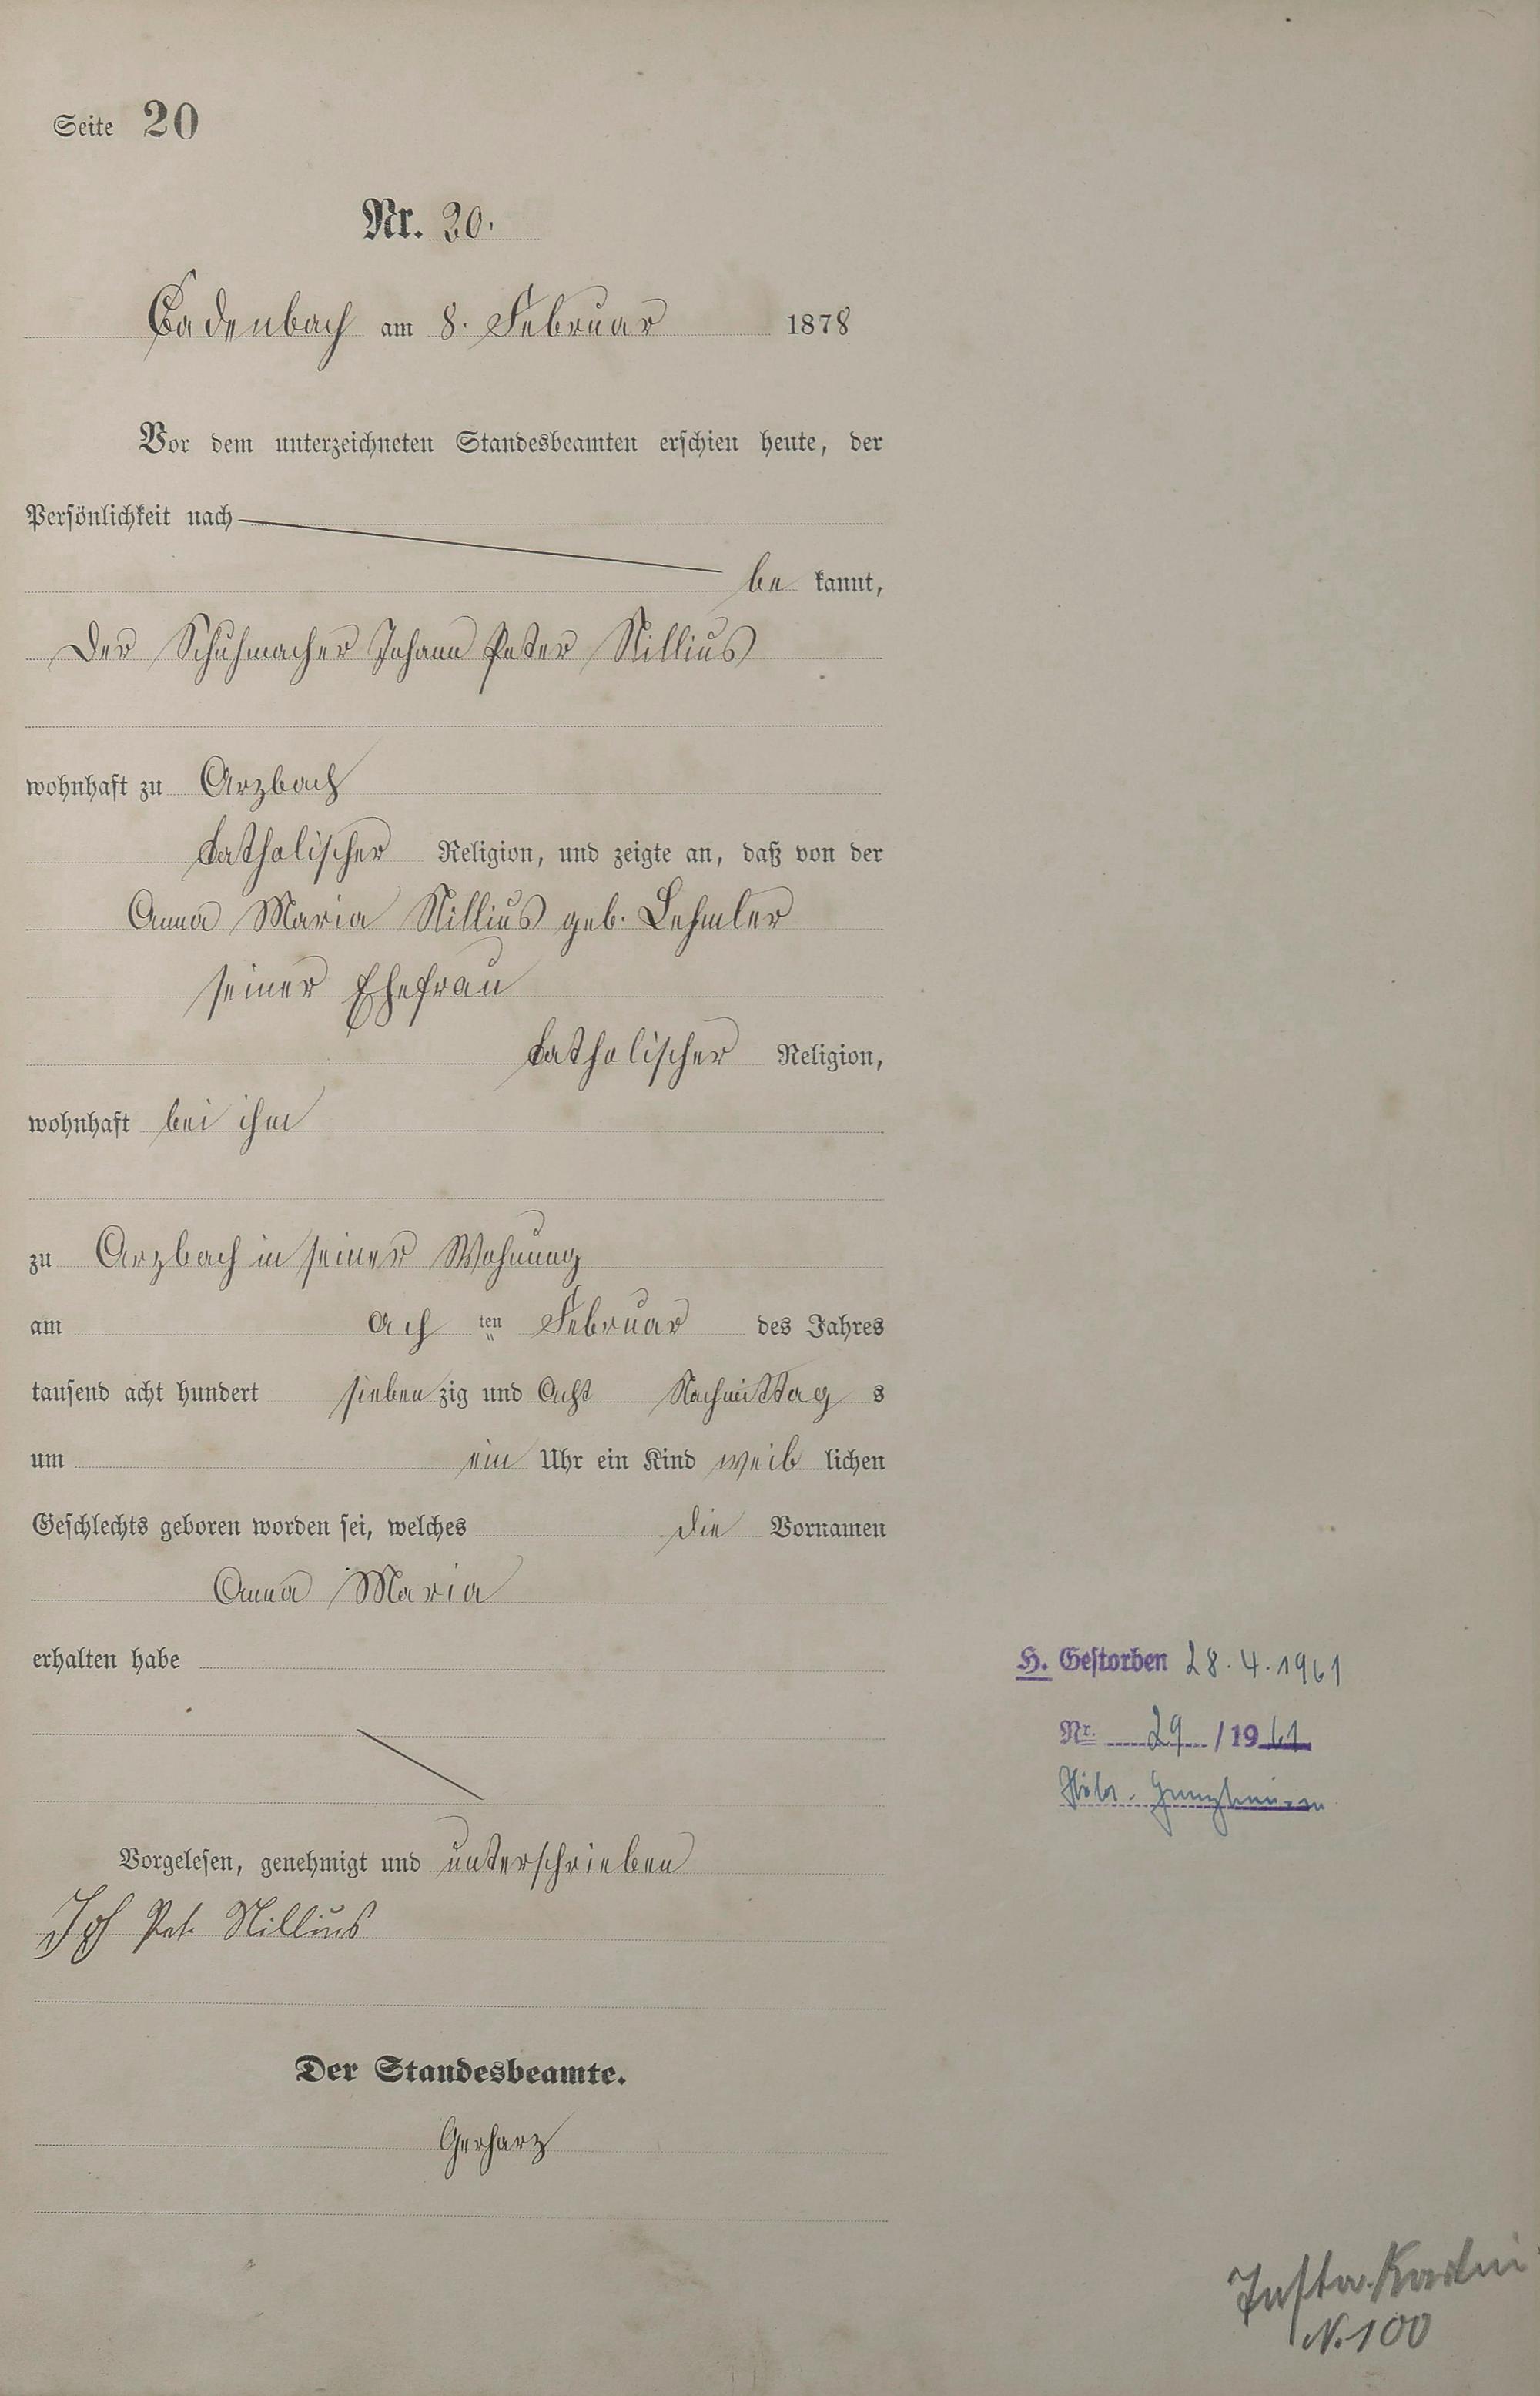 Seite 20
Nr. 20.
Cadenbach am 8. Februar 1878
Vor dem unterzeichneten Standesbeamten erschien heute, der
Persönlichkeit nach
be kannt,
der Schuhmacher Johann Peter Nillius
wohnhaft zu Arzbach
katholischer Religion, und zeigte an, daß von der
Anna Maria Nillius geb. Lehmler
seiner Ehefrau
katholischer Religion,
wohnhaft bei ihm
zu Arzbach in seiner Wohnung
am ach ten Februar des Jahres
tausend acht hundert sieben zig und acht Nachmittag s
um ein Uhr ein Kind weib lichen
Geschlechts geboren worden sei, welches die Vornamen
Anna Maria
erhalten habe
H. Gestorben 28.4.1961
Nr. 29 / 19 61
Vorgelesen, genehmigt und unterschrieben
Joh Pet. Nillius
Der Standesbeamte.
Gerharz
N. 100